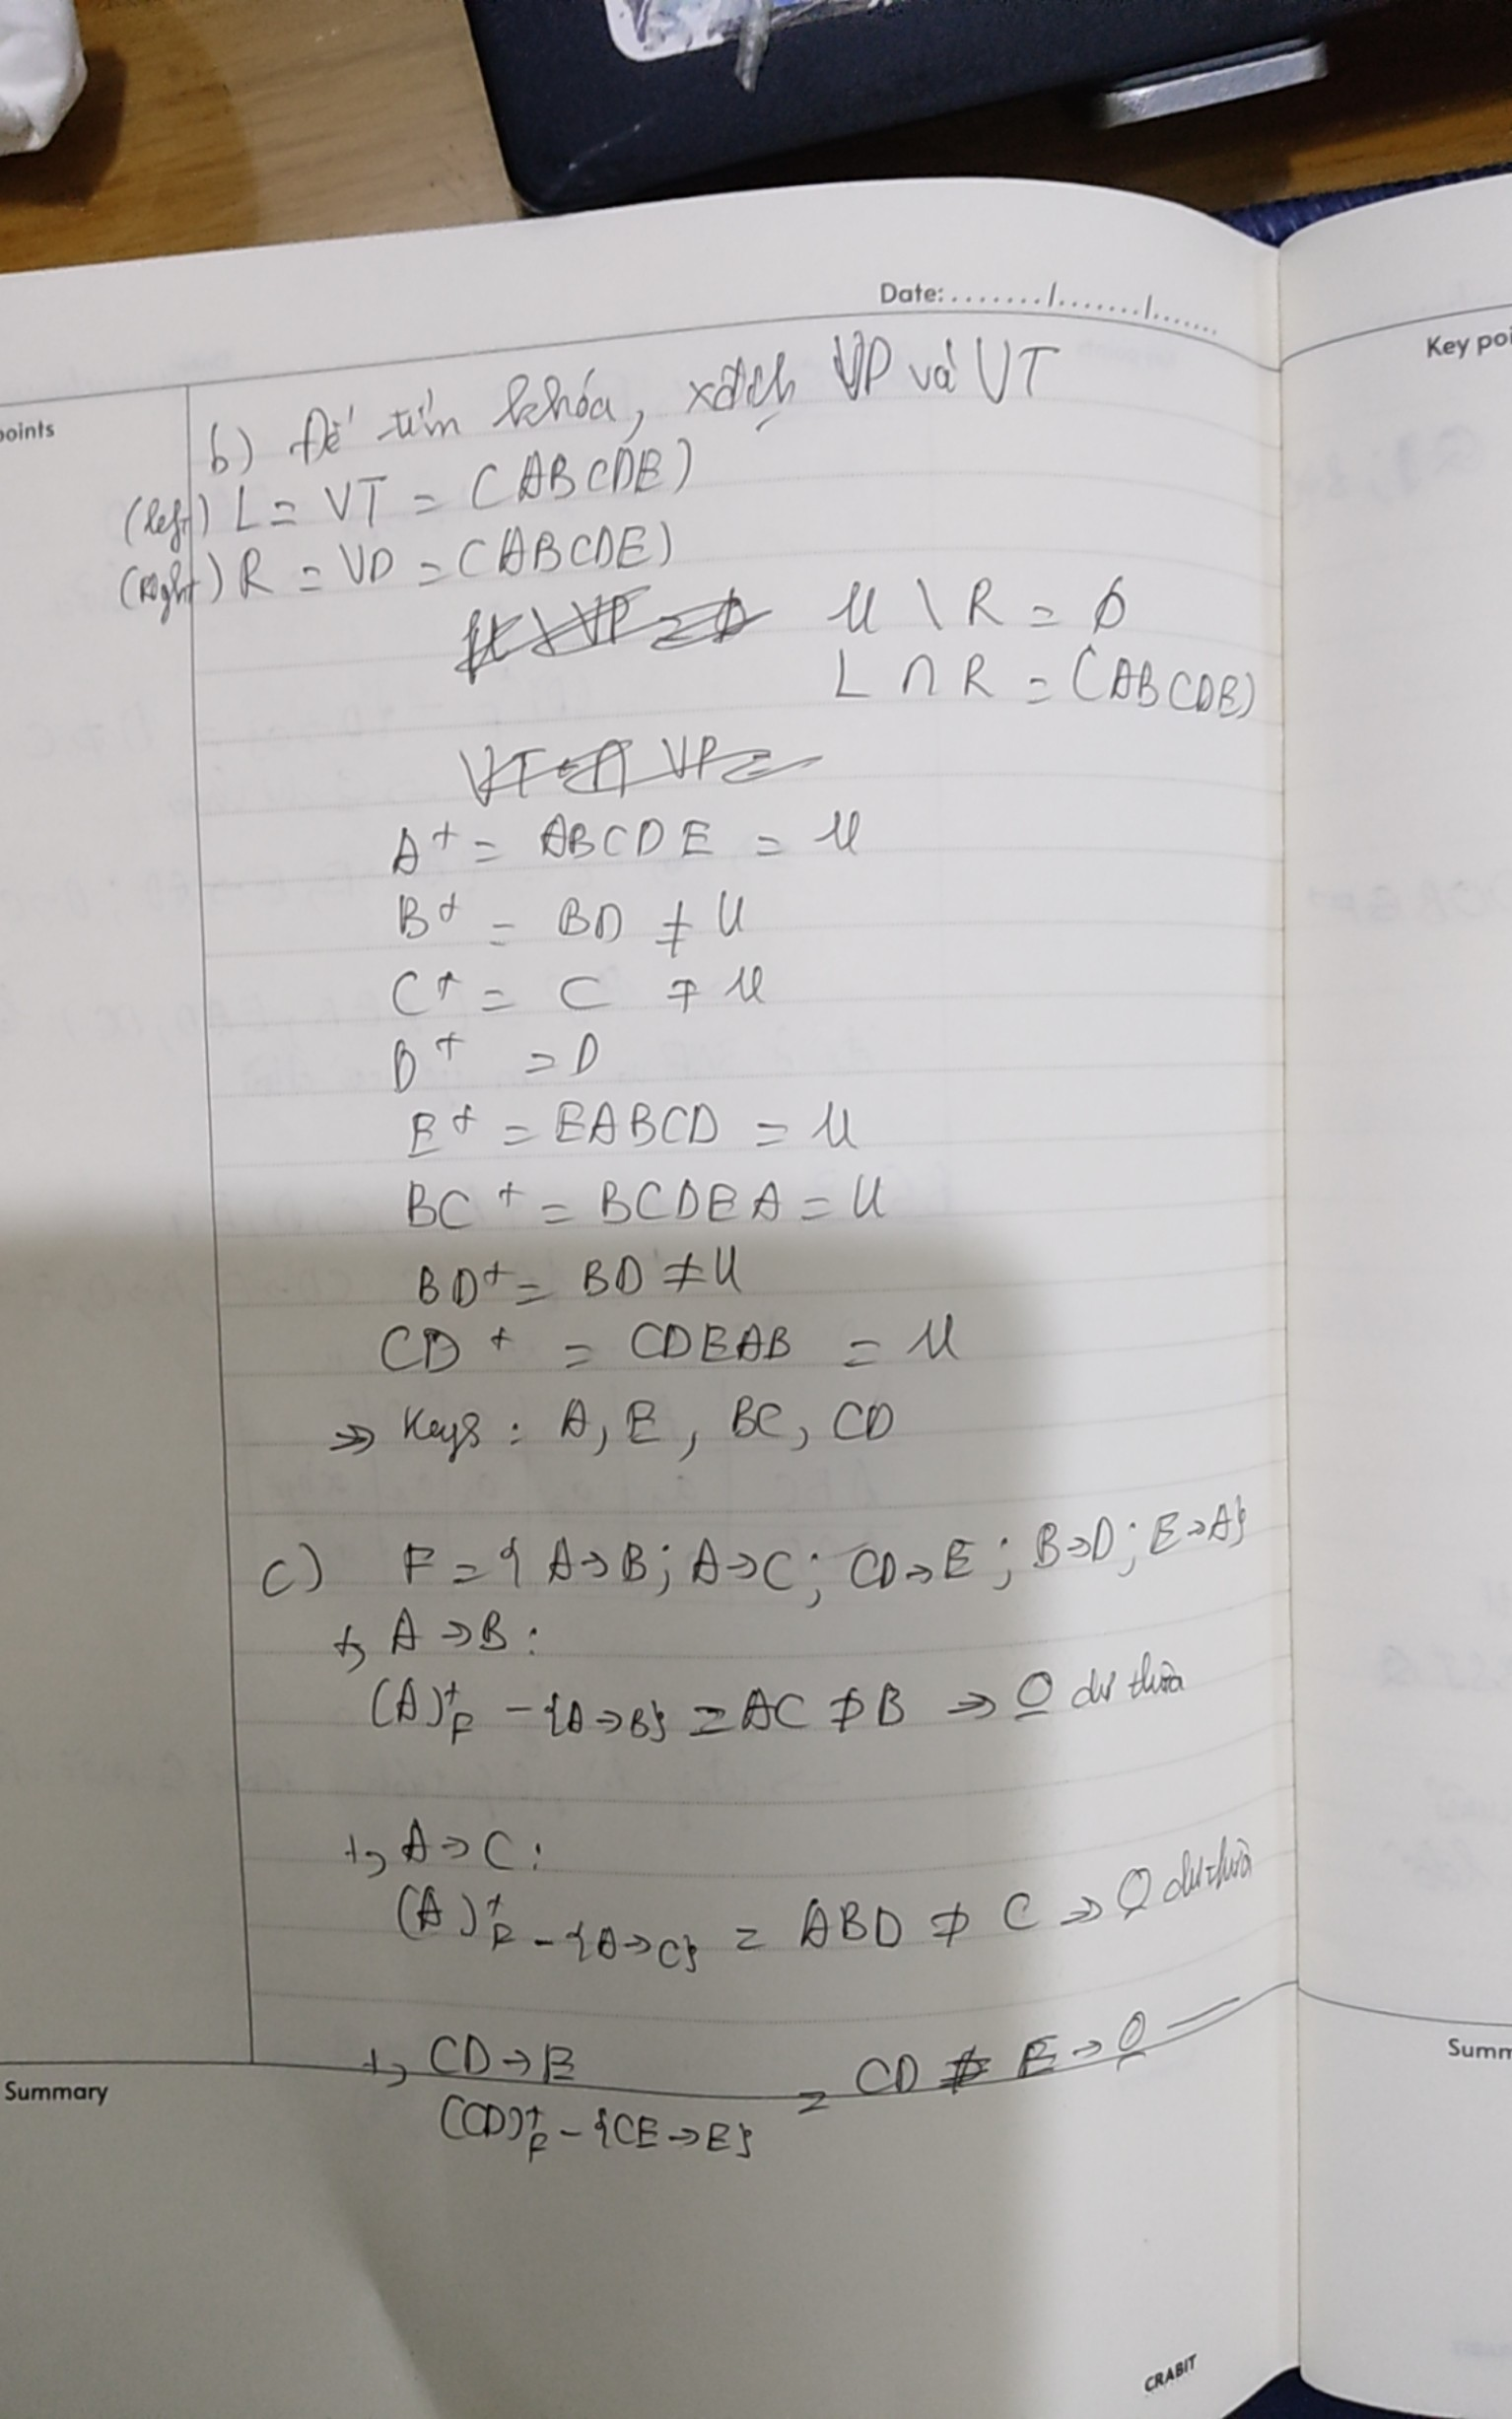 Date:......../......./.......
Key poi
points
b) Để tìm khóa, xđịnh VP và VT
(left) L = VT = (ABCDE)
(right) R = VP = (ABCDE)
U \ R = ∅
L ∩ R = (ABCDE)
VT ∩ VP =
A⁺ = ABCDE = U
B⁺ = BD ≠ U
C⁺ = C ≠ U
D⁺ = D
E⁺ = EABCD = U
BC⁺ = BCDEA = U
BD⁺ = BD ≠ U
CD⁺ = CDEAB = U
=> Keys : A, E, BC, CD
c) F = { A→B; A→C; CD→E; B→D; E→A}
+, A→B:
(A)⁺F - {A→B} = AC ∌ B => O dư thừa
+, A→C:
(A)⁺F - {A→C} = ABD ∌ C => O dư thừa
+, CD→E
(CD)⁺F - {CE→E} = CD ∌ E → O
Summary
Summ
CRABIT